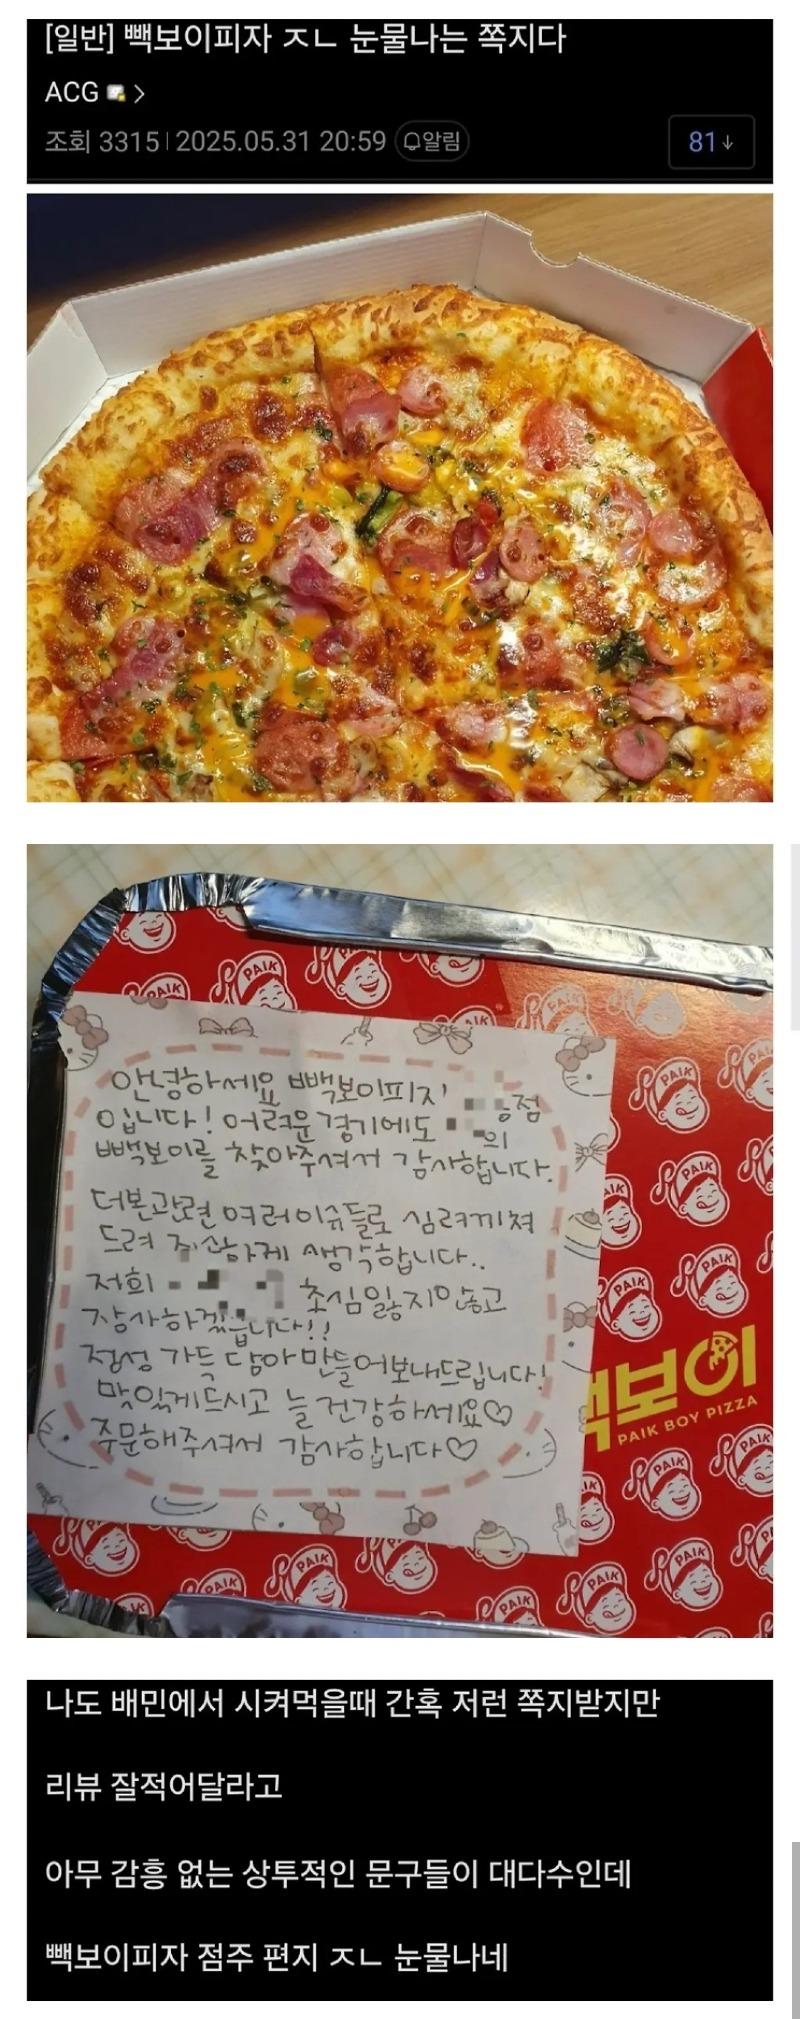 [일반] 빽보이피자 ㅈㄴ 눈물나는 쪽지다
ACG
조회 3315 | 2025.05.31 20:59 알림
81↓
안녕하세요 빽보이피자 점
입니다! 어려운 경기에도 의
빽보이를 찾아주셔서 감사합니다.
더본관련 여러이슈들로 심려끼쳐
드려 죄산하게 생각합니다..
저희 초심잃지않고
장사하겠습니다!!
정성 가득 담아만들어보내드립니다!
맛있게드시고 늘건강하세요♡
주문해주셔서 감사합니다♡
PAIK
빽보이
PAIK BOY PIZZA
나도 배민에서 시켜먹을때 간혹 저런 쪽지받지만
리뷰 잘적어달라고
아무 감흥 없는 상투적인 문구들이 대다수인데
빽보이피자 점주 편지 ㅈㄴ 눈물나네